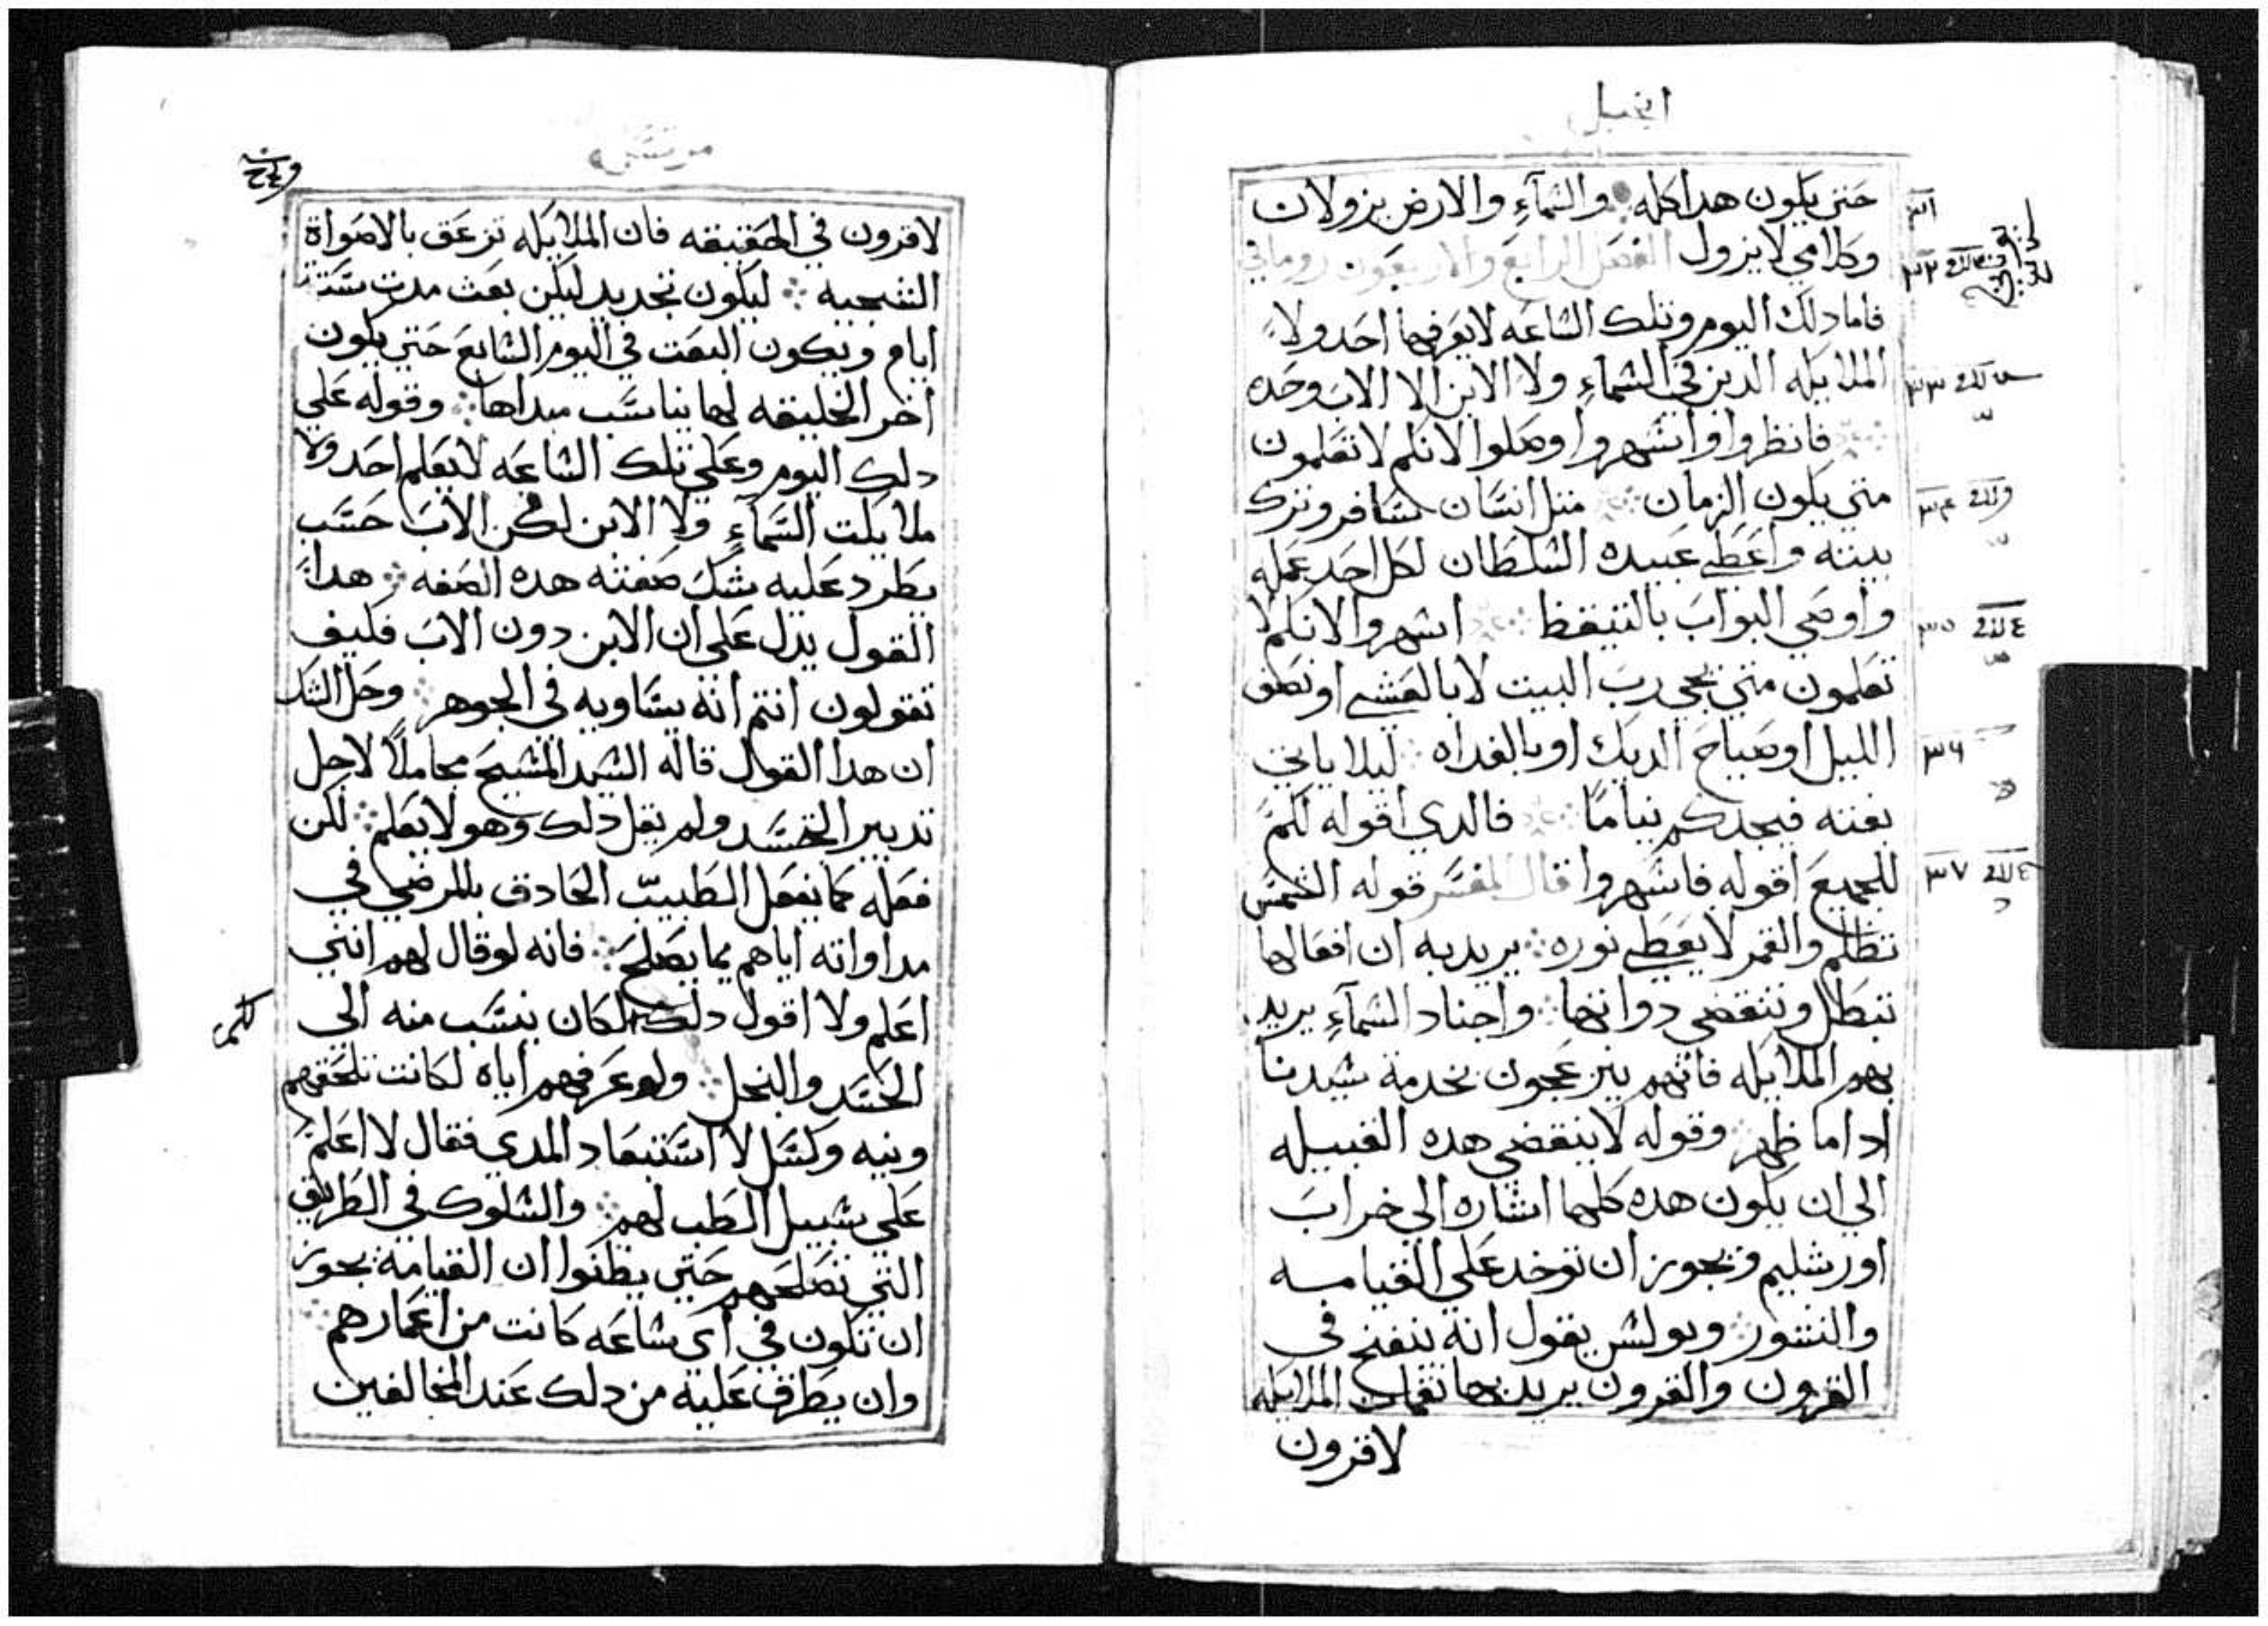 انجيل
حتى يكون هدا كله والسمآء والارض يزولان
وكلامي لا يزول الفصل الرابع والاربعون روماني
فاما دلك اليوم وتلك الساعه لا يعرفهما احد ولا
الملايكه الدين في السماء ولا الابن الا الاب وحده
فانظروا واسهروا وصلوا لانكم لا تعلمون
متى يكون الزمان مثل انسان يسافر وترك
بيته واعطى عبيده السلطان لكل احد عمله
واوصي البواب بالتيقظ اسهروا لانكم لا
تعلمون متى يجي رب البيت لا بالعشي او نصف
الليل او صياح الديك او بالغداه ليلا ياتي
بغته فيجدكم نياما فالدي اقوله لكم
للجميع اقوله فاسهروا قال المفسر قوله الشمس
تظلم والقمر لا يعطي نوره يريد به ان افعالها
تبطل وتنقضي دواتها واجناد السمآء يريد
بهم الملايكه فانهم ينزعجون بخدمة سيدنا
ادا ما ظهر وقوله لا ينقضي هده القبيله
الي ان يكون هده كلها اشاره الي خراب
اورشليم ويجوز ان توخد علي القيامه
والنشور وبولس يقول انه ينفخ في
القرون والقرون يريد بها نغمات الملايكه
لا قرون
٣١
٣٢
٣٣
٣٤
٣٥
٣٦
٣٧
مرقس
لا قرون في الحقيقه فان الملايكه تزعق بالاصواة
الشجيه ليكون تجديد ليكن بعث مدت ستة
ايام ويكون البعت في اليوم السابع حتى يكون
اخر الخليقه لها يناسب مبداها وقوله علي
دلك اليوم وعلي تلك الساعه لا يعلم احد ولا
ملايكت السمآء ولا الابن لكن الاب حسب
يطرد عليه شك صفته هده الصفه هدا
القول يدل علي ان الابن دون الاب فكيف
تقولون انتم انه يساويه في الجوهر وحل الشك
ان هدا القول قاله السيد المسيح مجاملا لاجل
تدبير الجسد ولم يقل دلك وهو لا يعلم لكن
فعله كما يفعل الطبيب الحادق بالمرضي في
مداواته اياهم بما يصلح فانه لو قال لهم انني
اعلم ولا اقول دلك لكان ينسب منه الي
الحسد والبخل ولو عرفهم اياه لكانت تلحقهم
ونيه وكسل لا استبعاد المدي فقال لا اعلم
علي سبيل الطب لهم والسلوك في الطريق
التي تصلحهم حتى يظنوا ان القيامة يجوز
ان تكون في اي ساعه كانت من اعمارهم
وان يطرق عليه من دلك عند المخالفين
لكم